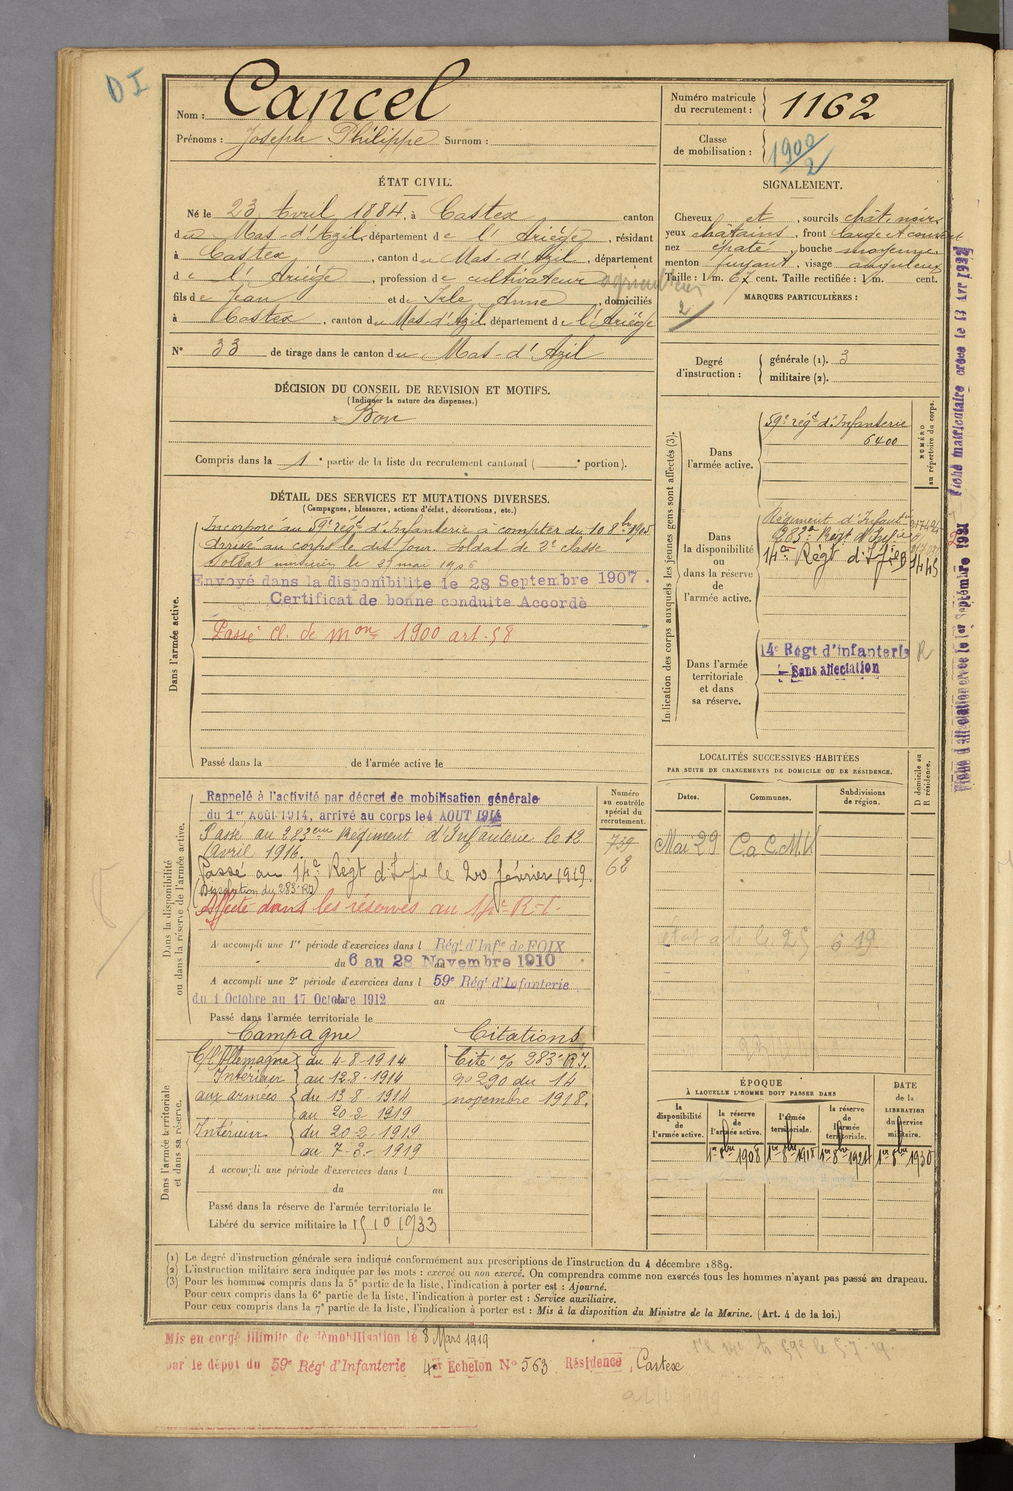 D I
Nom : Cancel
Prénoms : Joseph Philippe Surnom :
Numéro matricule du recrutement : 1162
Classe de mobilisation : 1900/2
ÉTAT CIVIL.
Né le 23 Avril 1884, à Castex canton
du Mas-d'Azil, département de l'Ariège, résidant
à Castex, canton du Mas-d'Azil, département
de l'Ariège, profession de cultivateur
fils de Jean et de Anne, domiciliés
à Castex, canton du Mas-d'Azil, département de l'Ariège
N° 33 de tirage dans le canton du Mas-d'Azil
SIGNALEMENT.
Cheveux et, sourcils chât. noirs
yeux châtains, front large et couvert
nez épaté, bouche moyenne
menton fuyant, visage anguleux
Taille : 1 m. 67 cent. Taille rectifiée : 1 m. cent.
MARQUES PARTICULIÈRES :
2/
DÉCISION DU CONSEIL DE REVISION ET MOTIFS.
(Indiquer la nature des dispenses.)
Bon
Compris dans la 1e partie de la liste du recrutement cantonal ( e portion).
Degré d'instruction : générale (1). 3
militaire (2).
DÉTAIL DES SERVICES ET MUTATIONS DIVERSES.
(Campagnes, blessures, actions d'éclat, décorations, etc.)
Dans l'armée active.
Incorporé au 59e régt d'Infanterie à compter du 10 8bre 1905
Arrivé au corps le dit jour. Soldat de 2e classe
Soldat musicien le 27 mai 1906
Envoyé dans la disponibilité le 28 Septembre 1907.
Certificat de bonne conduite Accordé
Passé cl. de mon 1900 art. 58
Passé dans la de l'armée active le
Indication des corps auxquels les jeunes gens sont affectés (3).
NUMÉRO au répertoire du corps.
Dans l'armée active.
59e régt d'Infanterie
6400
Dans la disponibilité ou dans la réserve de l'armée active.
Régiment d'Infant
283e Régt d'Infie
14e Régt d'Infie
Dans l'armée territoriale et dans sa réserve.
14e Régt d'Infanterie R
Sans affectation
Fiche matriculaire créée le 13 Avr 1932
Fiche d'affectation créée le 1er Septembre 1921
Dans la disponibilité ou dans la réserve de l'armée active.
Numéro au contrôle spécial du recrutement.
739
62
Rappelé à l'activité par décret de mobilisation générale
du 1er Août 1914, arrivé au corps le 4 AOUT 1914
Passé au 283ème Régiment d'Infanterie le 12
avril 1916.
Passé au 14e Régt d'Infie le 20 février 1919.
(Dissolution du 283e RI)
Affecté dans les réserves au
A accompli une 1re période d'exercices dans l Régt d'Infie de FOIX
du 6 au 28 Novembre 1910
A accompli une 2e période d'exercices dans l 59e Régt d'Infanterie
du 1 Octobre au 17 Octobre 1912 au
Passé dans l'armée territoriale le
LOCALITÉS SUCCESSIVES HABITÉES
PAR SUITE DE CHANGEMENTS DE DOMICILE OU DE RÉSIDENCE.
Dates. Communes. Subdivisions de région. D domicile ou R résidence.
Mai 29 Ca C.M.V
Dans l'armée territoriale et dans sa réserve.
Campagne Citations
C/ l'Allemagne du 4-8-1914 Cité % 283e R.I.
Intérieur au 12-8-1914 n° 290 du 14
aux armées du 13-8-1914 novembre 1918.
au 20-2-1919
Intérieur du 20-2-1919
au 7-3-1919
A accompli une période d'exercices dans l
du au
Passé dans la réserve de l'armée territoriale le
Libéré du service militaire le 15 10 1933
ÉPOQUE
À LAQUELLE L'HOMME DOIT PASSER DANS
la disponibilité de l'armée active. la réserve de l'armée active. l'armée territoriale. la réserve de l'armée territoriale. DATE de la LIBÉRATION du service militaire.
1er 8bre 1908 1er 8bre 1918 1er 8bre 1924 1er 8bre 1930
(1) Le degré d'instruction générale sera indiqué conformément aux prescriptions de l'instruction du 4 décembre 1889.
(2) L'instruction militaire sera indiquée par les mots : exercé ou non exercé. On comprendra comme non exercés tous les hommes n'ayant pas passé au drapeau.
(3) Pour les hommes compris dans la 5e partie de la liste, l'indication à porter est : Ajourné.
Pour ceux compris dans la 6e partie de la liste, l'indication à porter est : Service auxiliaire.
Pour ceux compris dans la 7e partie de la liste, l'indication à porter est : Mis à la disposition du Ministre de la Marine. (Art. 4 de la loi.)
Mis en congé illimité de démobilisation le 8 Mars 1919
par le dépôt du 59e Régt d'Infanterie 4e Echelon N° 563 Résidence Castex